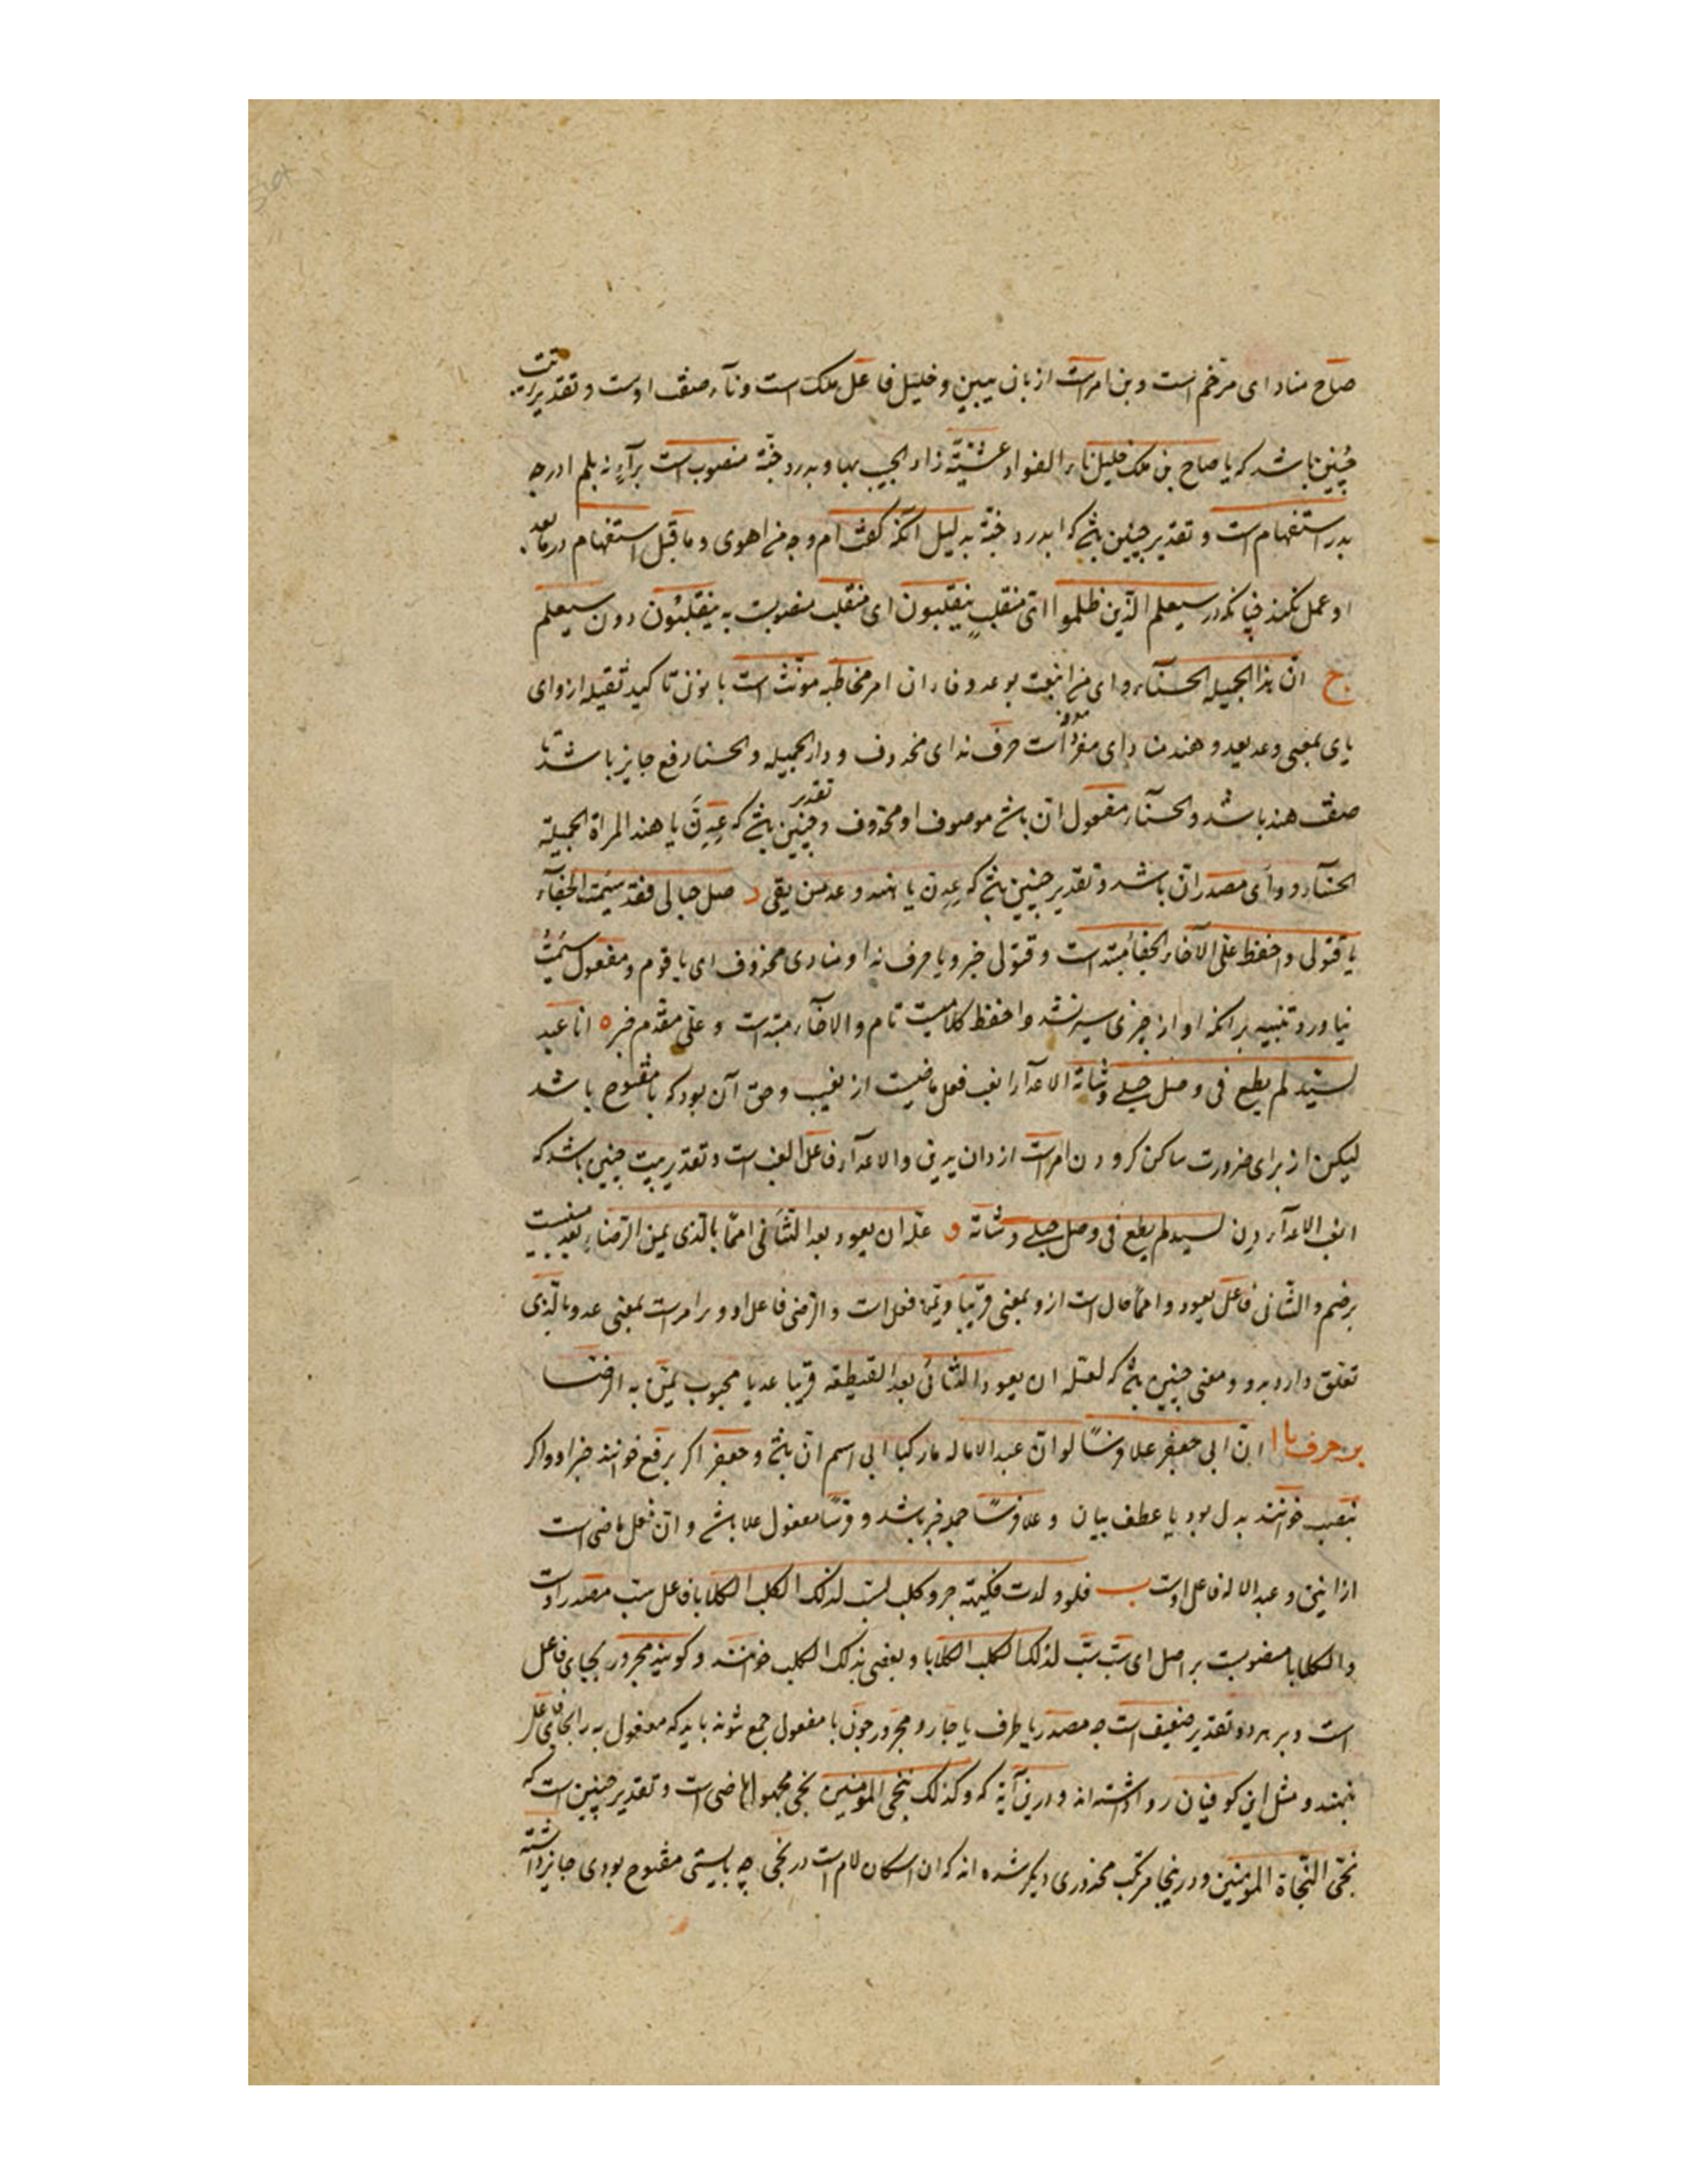 صاح منادای مرخم است و بن امرست از بان یبین و خلیل فاعل ملک است و نآء صفت اوست و تقدیر بیت
چنین باشد که یا صاح بن ملک خلیل ناء الفواد عشیّة زار الحبیب بها و بدرد جنّة منصوب است برآء نه بلم ادر چه
بدر استفهام است و تقدیر چنین بشد که ابدرد جنّة بدلیل آنکه گفت ام و جه من اهوی و ما قبل استفهام در ما بعد
او عمل نکند چنانکه در سیعلم الّذین ظلموا ایّ منقلبٍ ینقلبون ای منقلب منصوبست به ینقلبون دون سیعلم
ج انّ هند الجمیله الحسنآء وای من اتبعت بوعد وفاء ان امر مخاطبه مونّث است با نون تاکید ثقیله از وای
یای بمعنی وعد یعد و هند منادای مفرد معرفه است حرف ندای محذوف و در الجمیله و الحسنا رفع جایز باشد تا
صفت هند باشد و الحسنآء مفعول ان باشد موصوف او محذوف و تقدیر چنین بشد که عِدِنَّ یا هند المراة الجمیلة
الحسنآء و وای مصدر ان باشد و تقدیر چنین بشد که عِدِن یا هند وعد من یقی د صل حبالی فقد سئمت الجفآء
یا قتولی و احفظ علیّ الاخاء الجفا مبتداست و قتولی خبر و یا حرف ندا و منادی محذوف ای یا قوم و مفعول سئمتُ
نیاورد تنبیه برانکه او از چیزی سیر نشد و احفظ کلامیست تام و الاخآء مبتداست و علی مقدم خبر ه انا عبد
لسیّد لم یطع فی وصل حبلی وشاة الاعدآء انب فعل ماضیست از یغیب و حق آن بود که با مفتوح باشد
لیکن از برای ضرورت ساکن کرد و دن امرست از دان یدین و الاعدآء فاعل انب است و تقدیر بیت چنین باشد که
انب الاعدآء دِن لسید لم یطع فی وصل حبلی وشاة و علّه ان یعود بعد التنآئی امّا بالّذی یمین الرضاء بعد بیت
برضم و الثانی فاعل یعود و امّا حال است از و بمعنی قریبا و یمن فعل است و الرضی فاعل او و را امرست بمعنی عد و بالّذی
تعلق دارد برو و معنی چنین بشد که لعله ان یعود الثانی بعد القیطعه قریبا عد یا محبوب یمین به الرضا
بن حرف با ا انّ ابی جعفر علا فرسًا لو انّ عبد الاله مارکبا ابی اسم انّ بشد و جعفر اگر برفع خوانند خبر او و اگر
بنصب خوانند بدل بود یا عطف بیان و علا فرسًا جمله خبر باشد و فرسًا مفعول علا باشد و انّ فعل ماضی است
از انین و عبد الاله فاعل اوست ب فلو ولدت فکیهة جرو کلب لسبّ لذلک الکلب الکلابا فاعل سبّ مصدر است
و الکلابا منصوبست بر اصل ای سبّ سبّ لذلک الکلب الکلابا و بعضی بذلک الکلب خوانند و کویند مجرور بجای فاعل
است و بر هر دو تقدیر ضعیف است چه مصدر یا ظرف یا جار و مجرور چون با مفعول جمع شوند باید که مفعول به را بجای فاعل
نهند و مثل این کوفیان روا داشته اند و درین آیة که و کذلک نجی المؤمنین نجی مجهول ماضی است و تقدیر چنین است که
نجّی النّجاة المؤمنین و درینجا مرتکب محذوری دیگر شده اند که ان اسکان لام است در نجی چه بایستی مفتوح بودی جایز داشته